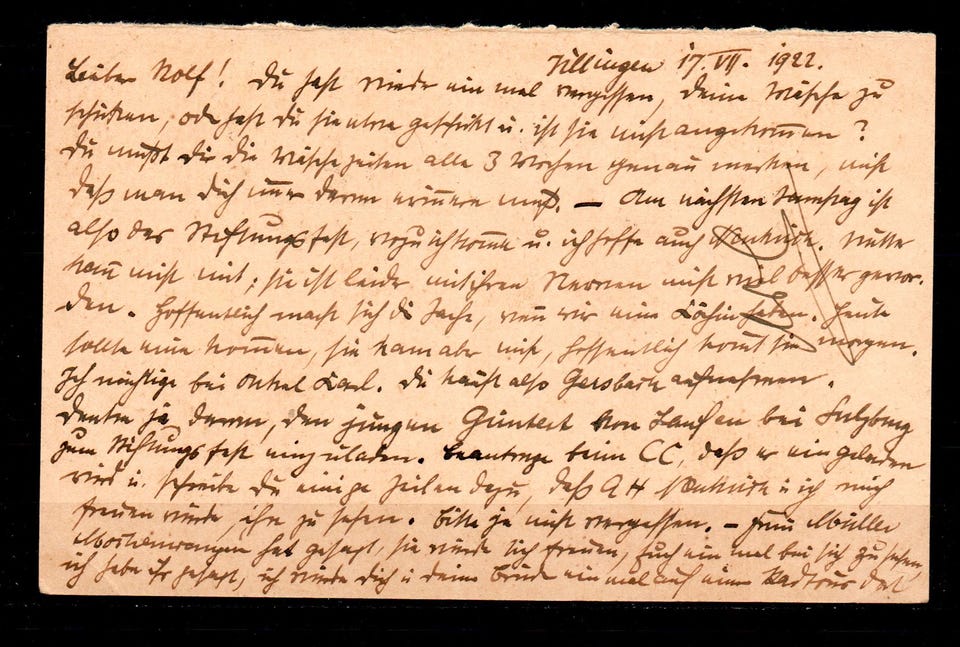 Villingen 17. VII. 1922.
Lieber Rolf! Du hast wieder ein mal vergessen, deine Wäsche zu
schicken, oder hast du sie etwa geschickt u. ist sie nicht angekommen?
Du mußt dir die Wäschezeiten alle 3 Wochen genau merken, nicht
daß man dich immer daran erinnern muß. — Am nächsten Samstag ist
also das Stiftungsfest, wozu ich komme u. ich hoffe auch. Mutter
kann nicht mit; sie ist leider mit ihren Nerven nicht viel besser gewor-
den. Hoffentlich macht sich die Sache, wenn wir eine Köchin haben. Heute
sollte eine kommen, sie kam aber nicht, hoffentlich kommt sie morgen.
Ich nächtige bei Onkel Karl. Du kannst also Gersbach aufnehmen.
Denke ja daran, den jungen Güntert von Laufen bei Sulzburg
zum Stiftungsfest einzuladen. Beantrage beim CC, daß er eingeladen
wird u. schreibe du einige Zeilen dazu, daß AH u ich mich
freuen würde, ihn zu sehen. Bitte ja nicht vergessen. — Frau Müller
hat gesagt, sie würde sich freuen, Euch ein mal bei sich zu sehen,
ich habe ihr gesagt, ich würde dich u deine Brüder ein mal auf einer Radtour